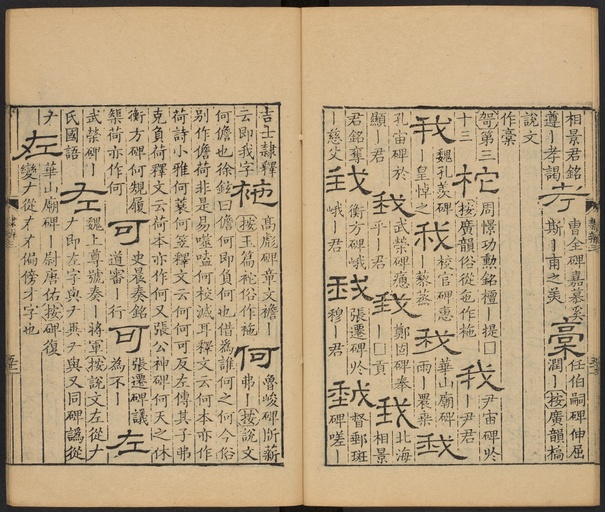 相景君銘
遵｜孝謁
考
曹全碑嘉慕奚
斯｜甫之美
稾
任伯嗣碑伸屈
潤｜按廣韻稿
說文
作稾
哿第三
十三
柁
周憬功勳銘檀｜提囗
按廣韻俗從㐌作拖
我
尹宙碑於
｜尹君
我
魏孔羨碑
｜皇悼之
我
校官碑惠
｜藜蒸
我
華山廟碑
雨｜農桒
我
孔宙碑於
顯｜君
我
武榮碑
｜乎｜
我
鄭固碑奉
｜囗貢
我
北海
相景
君銘奪
｜慈父
我
衡方碑峨
峨｜君
我
張遷碑於
穆｜君
我
督郵斑
碑嗟｜
吉士隸釋
云即我字
袘
高彪碑章文襜｜
按玉篇袉俗作袘
何
魯峻碑所新
弗｜按說文
何儋也徐鉉曰儋何即負何也借爲誰何之何今俗
別作擔荷非是易噬嗑何校滅耳釋文云何本亦作
荷詩小雅何蓑何笠釋文云何何可反左傳其子弗
克負荷釋文云荷本亦作何又張公神碑何天之休
衡方碑何規履
榘荷亦作何
可
史晨奏銘
道審｜行
可
張遷碑議
爲不｜
左
武榮碑｜
氏國語
左
魏上尊號奏｜將軍按說文左從𠂇
𠂇即左字與𠂇典𠂇與又同碑譌從
𠂇
左
華山廟碑｜尉唐佑按碑復
變𠂇從才才偏傍才字也